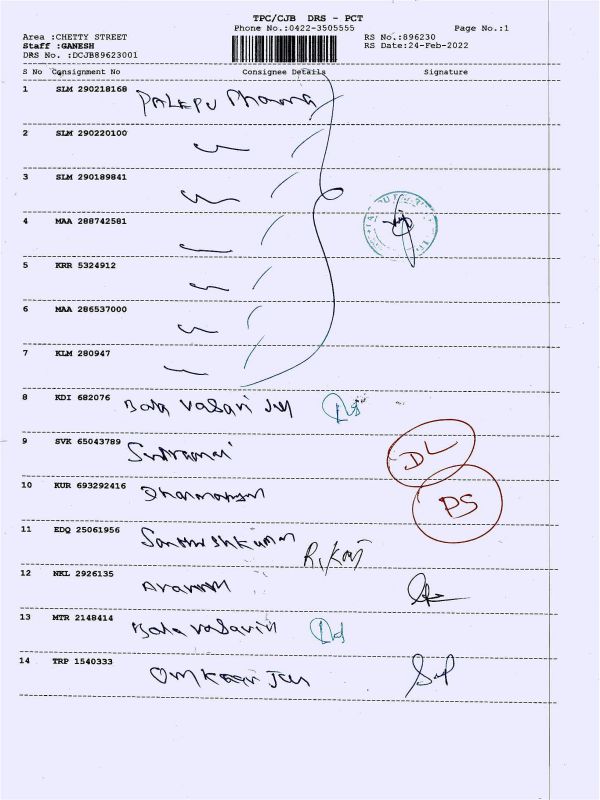 TPC/CJB DRS - PCT
Phone No.:0422-3505555 Page No.:1
Area :CHETTY STREET RS No.:896230
Staff :GANESH RS Date:24-Feb-2022
DRS No. :DCJB89623001
S No Consignment No Consignee Details Signature
1 SLM 290218168 PALEPU
2 SLM 290220100
3 SLM 290189841
4 MAA 288742581
5 KRR 5324912
6 MAA 286537000
7 KLM 280947
8 KDI 682076 Bala vasavi
9 SVK 65043789
DL
10 KUR 693292416
PS
11 EDQ 25061956 Santhoshkumar
12 NKL 2926135
13 MTR 2148414 Bala vasavi
14 TRP 1540333 Omkaar